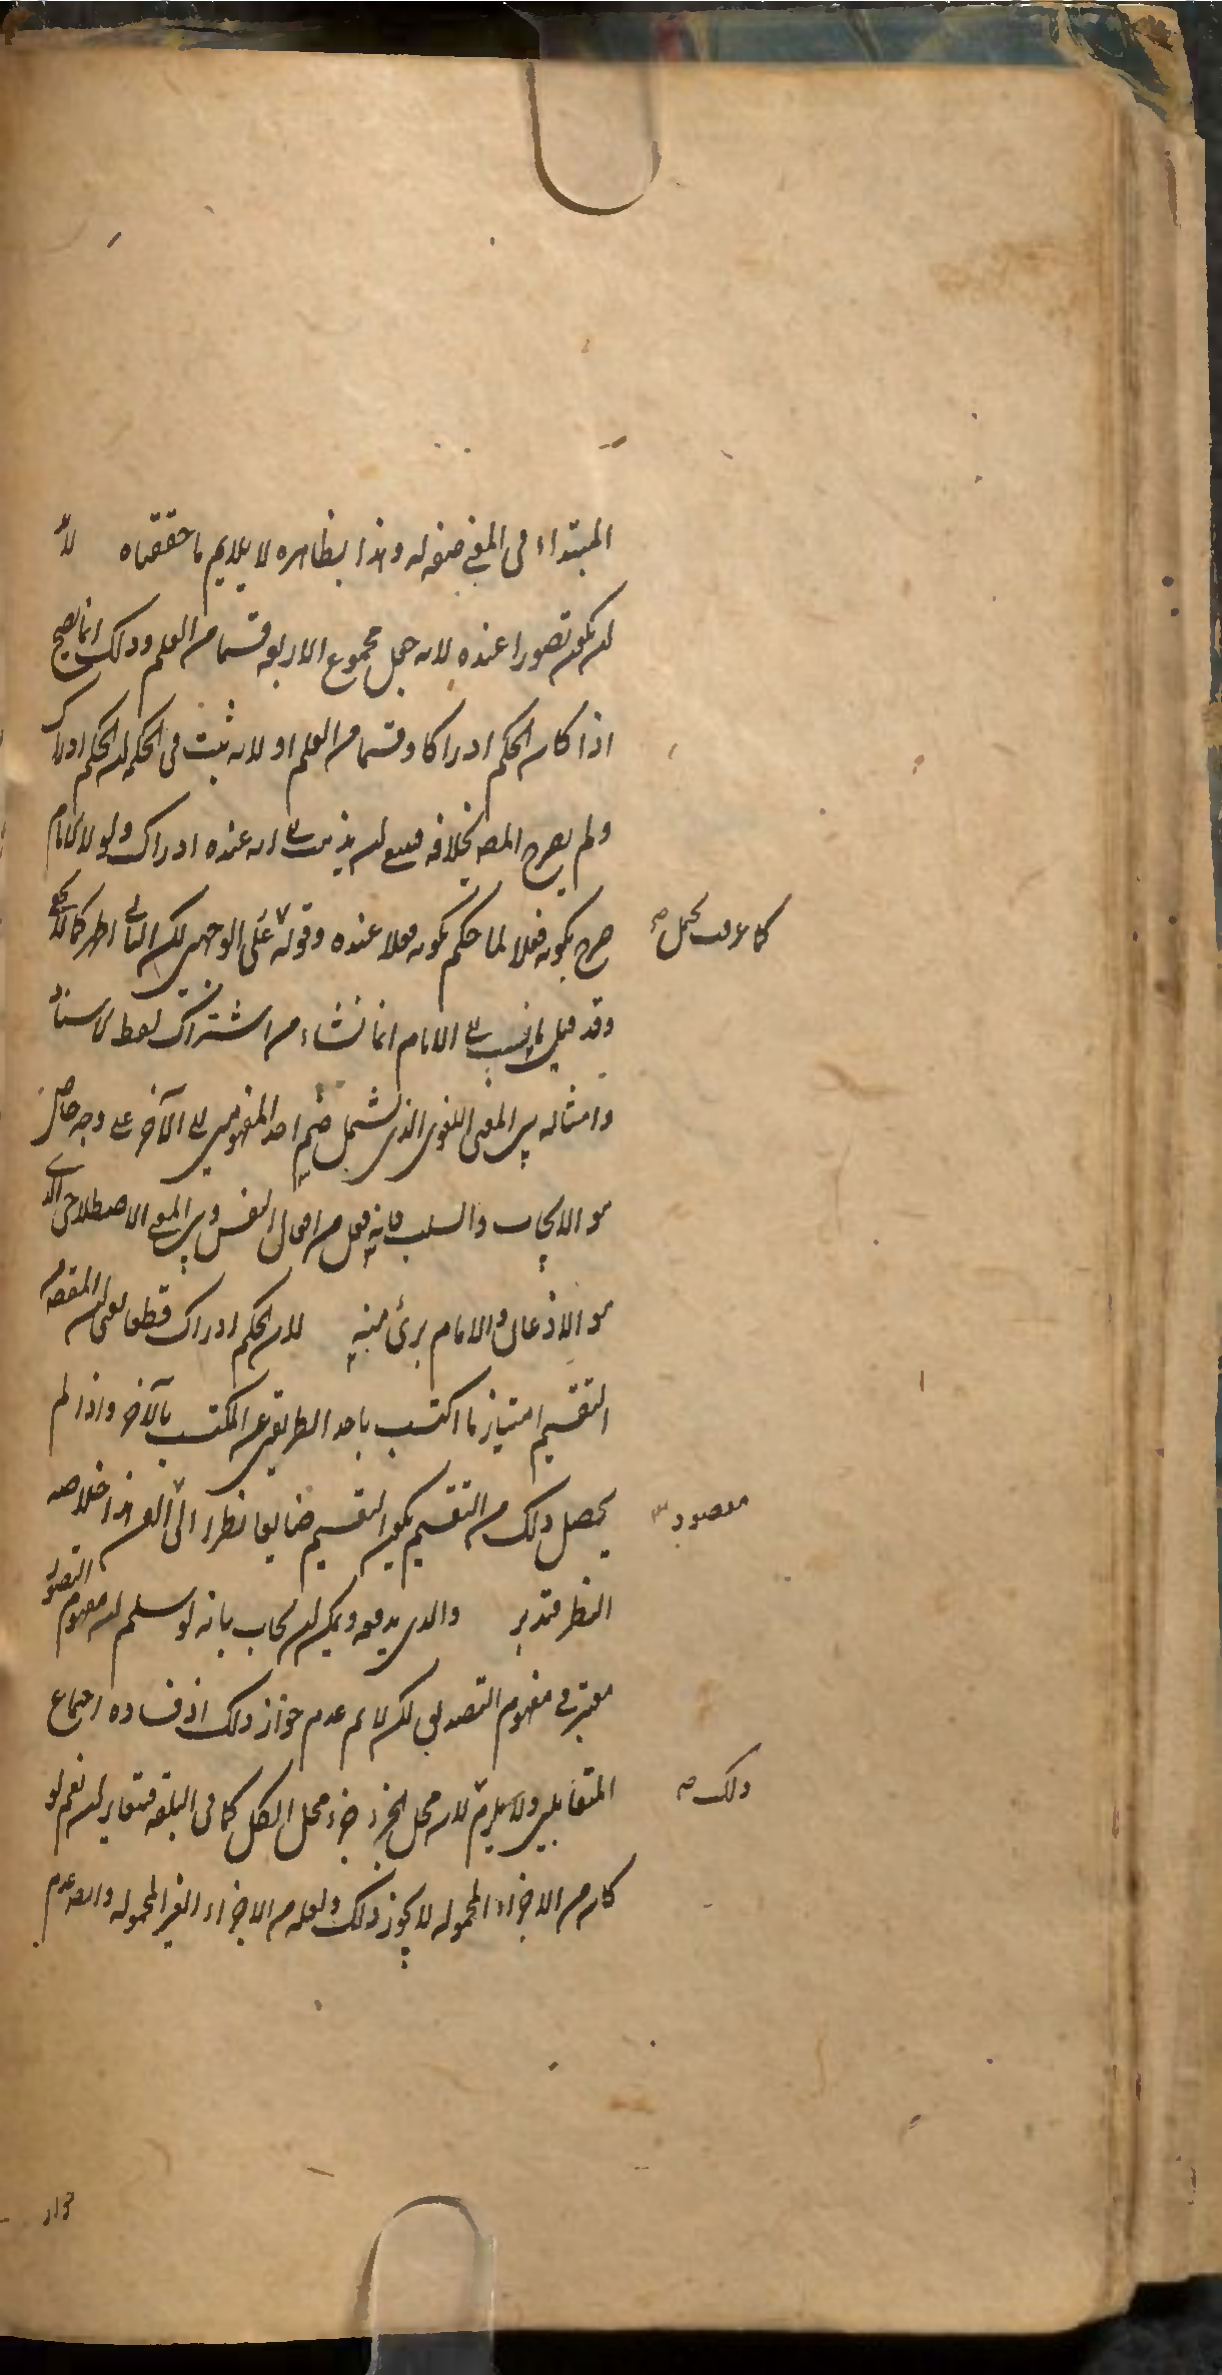 المبتداء فى المعنى صفة له وهذا بظاهره لا يلايم ما حققناه لا
ان يكون تصورا عنده لانه جعل مجموع الاربعة قسما من العلم وذلك انما يصح
اذا كان الحكم ادراكا وقسما من العلم او لانه ثبت فى الحكم ان الحكم ادراك
ولم يصرح المصـ بخلافه فينبغى ان يذهب الى انه عنده ادراك ولو لا الامام
صرح بكونه فعلا لما حكم بكونه فعلا عنده وقوله على الوجهين لكن الثانى اظهر
كما عرفت
وقد قيل ما نسب الى الامام انما نشاء من اشتراك لفظ الاسناد
وامثاله بين المعنى اللغوى الذى يشمل ضم احد المفهومين الى الآخر على وجه خاص
هو الايجاب والسلب فانه فعل من افعال النفس وبين المعنى الاصطلاحى الذى
هو الاذعان والامام برئ منه لان الحكم ادراك قطعا يعنى ان المقصود
التقسيم امتياز ما اكتسب باحد الطريقين عن المكتسب بالآخر واذا لم
يحصل ذلك من التقسيم يكون التقسيم ضايعا نظرا الى الفن هذا خلاصة
مقصود
النظر فتدبر والذى يدفعه ويمكن ان يجاب بانه لو سلم ان مفهوم التصور
معتبر فى مفهوم التصديق لكن لا نم عدم جواز ذلك اذ فساده اجتماع
المتقابلين ولا يلزم لان محل الجزء جزء محل الكل كما فى البلقة فتغاير ان نعم لو
ذلك
كان من الاجزاء المحمولة لا يجوز ذلك ولعله من الاجزاء الغير المحمولة والله
جواز